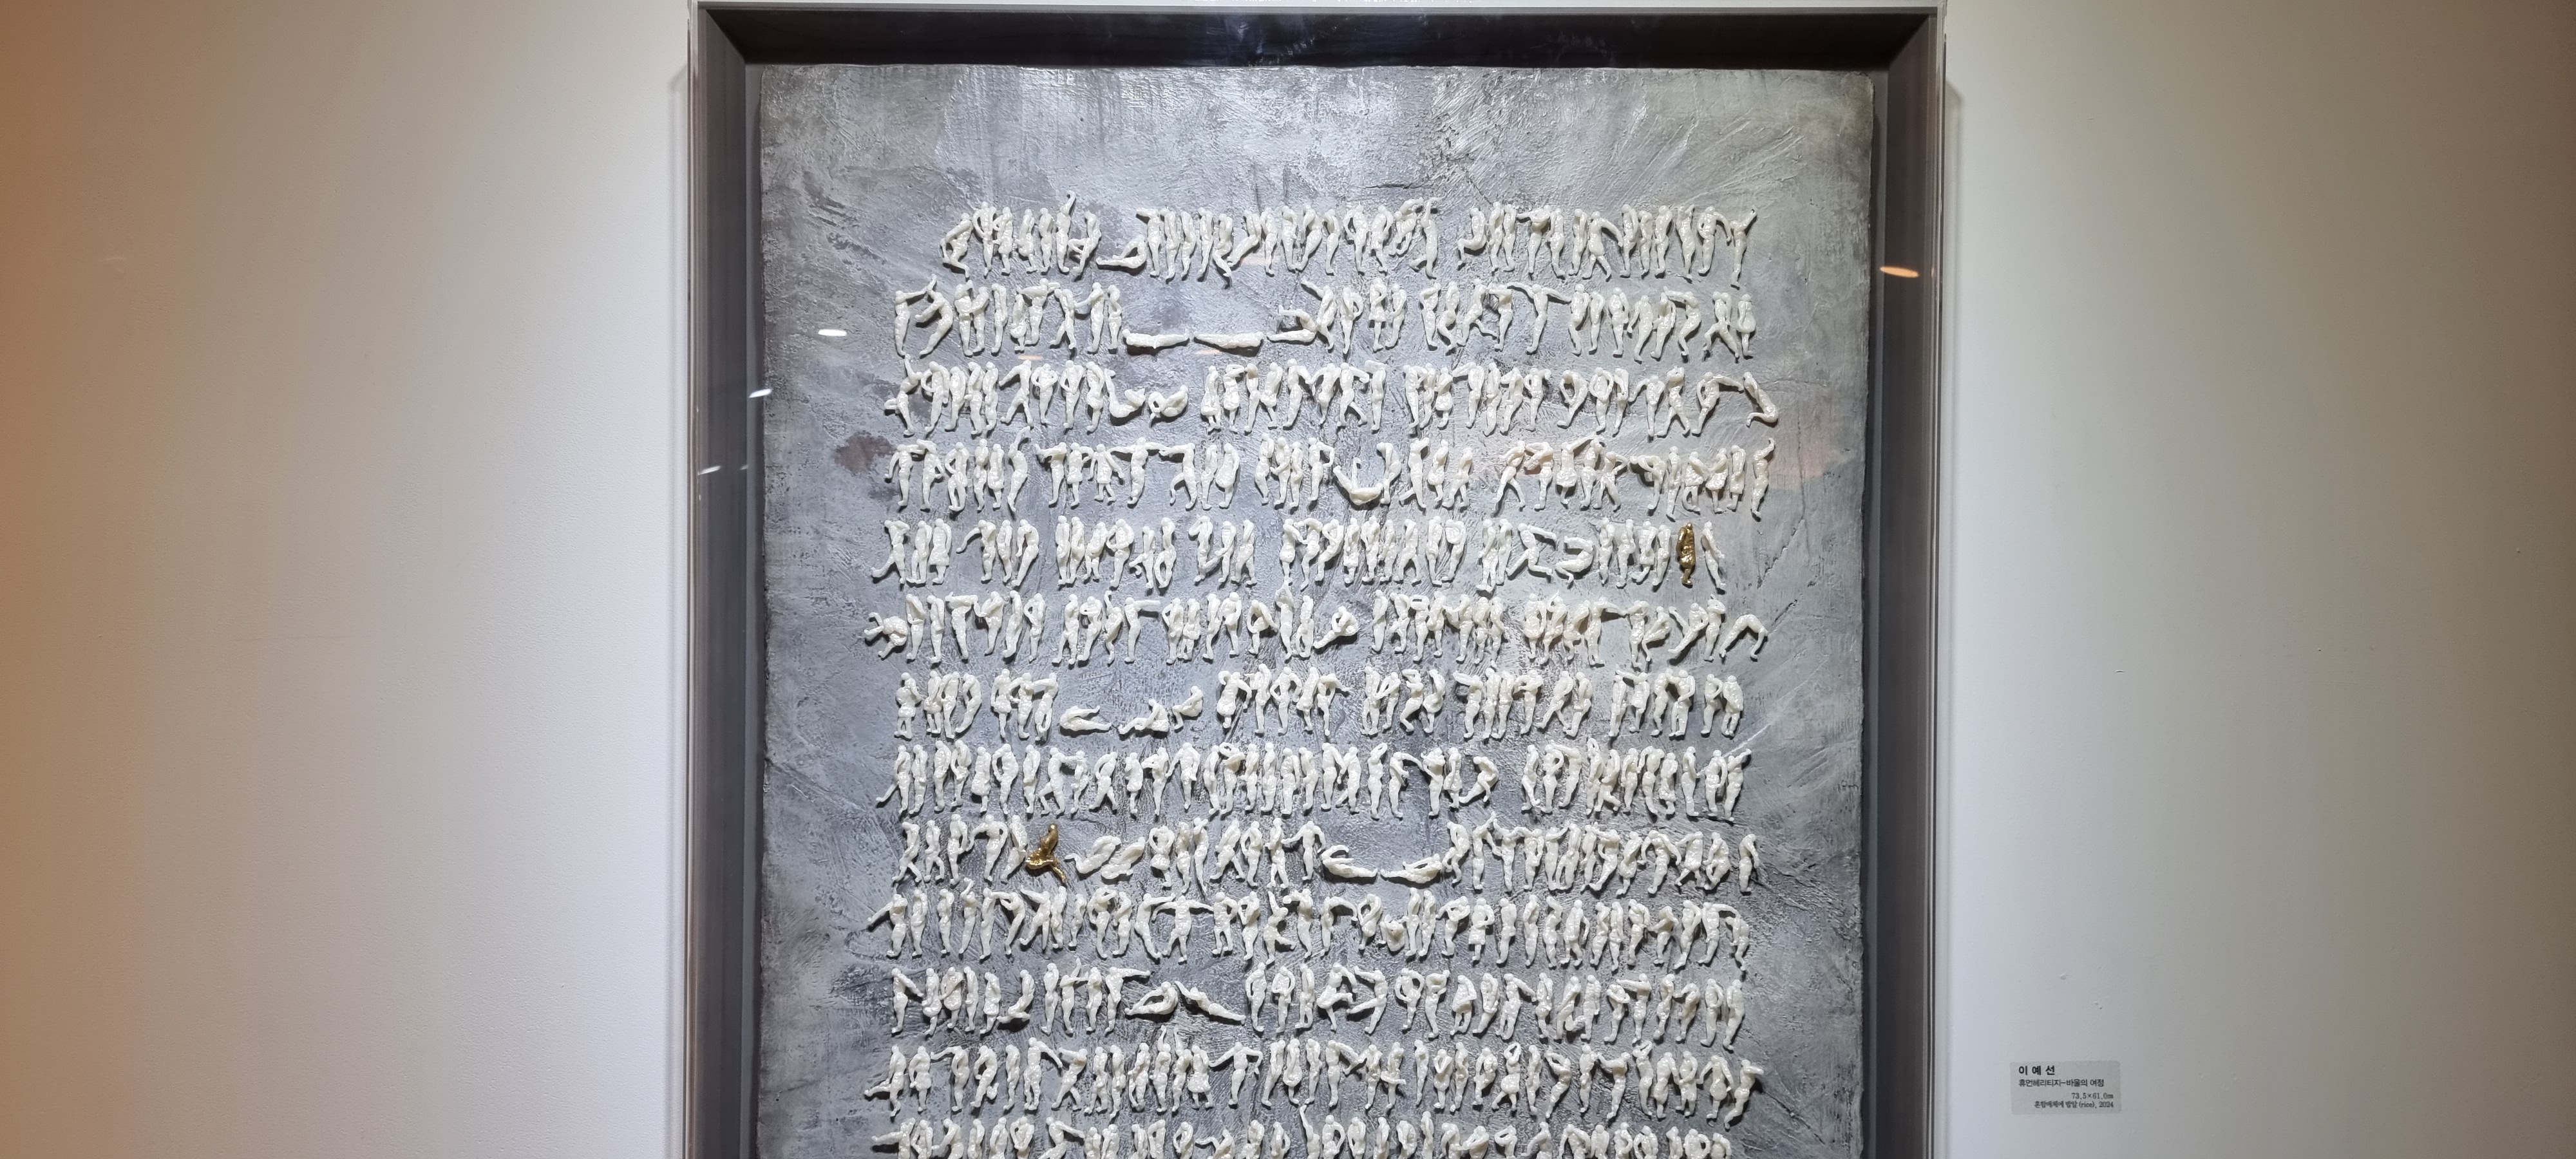 이 예 선
휴먼헤리티지-바울의 여정
73.5×61.0m
혼합매체에 밥알 (rice), 2024